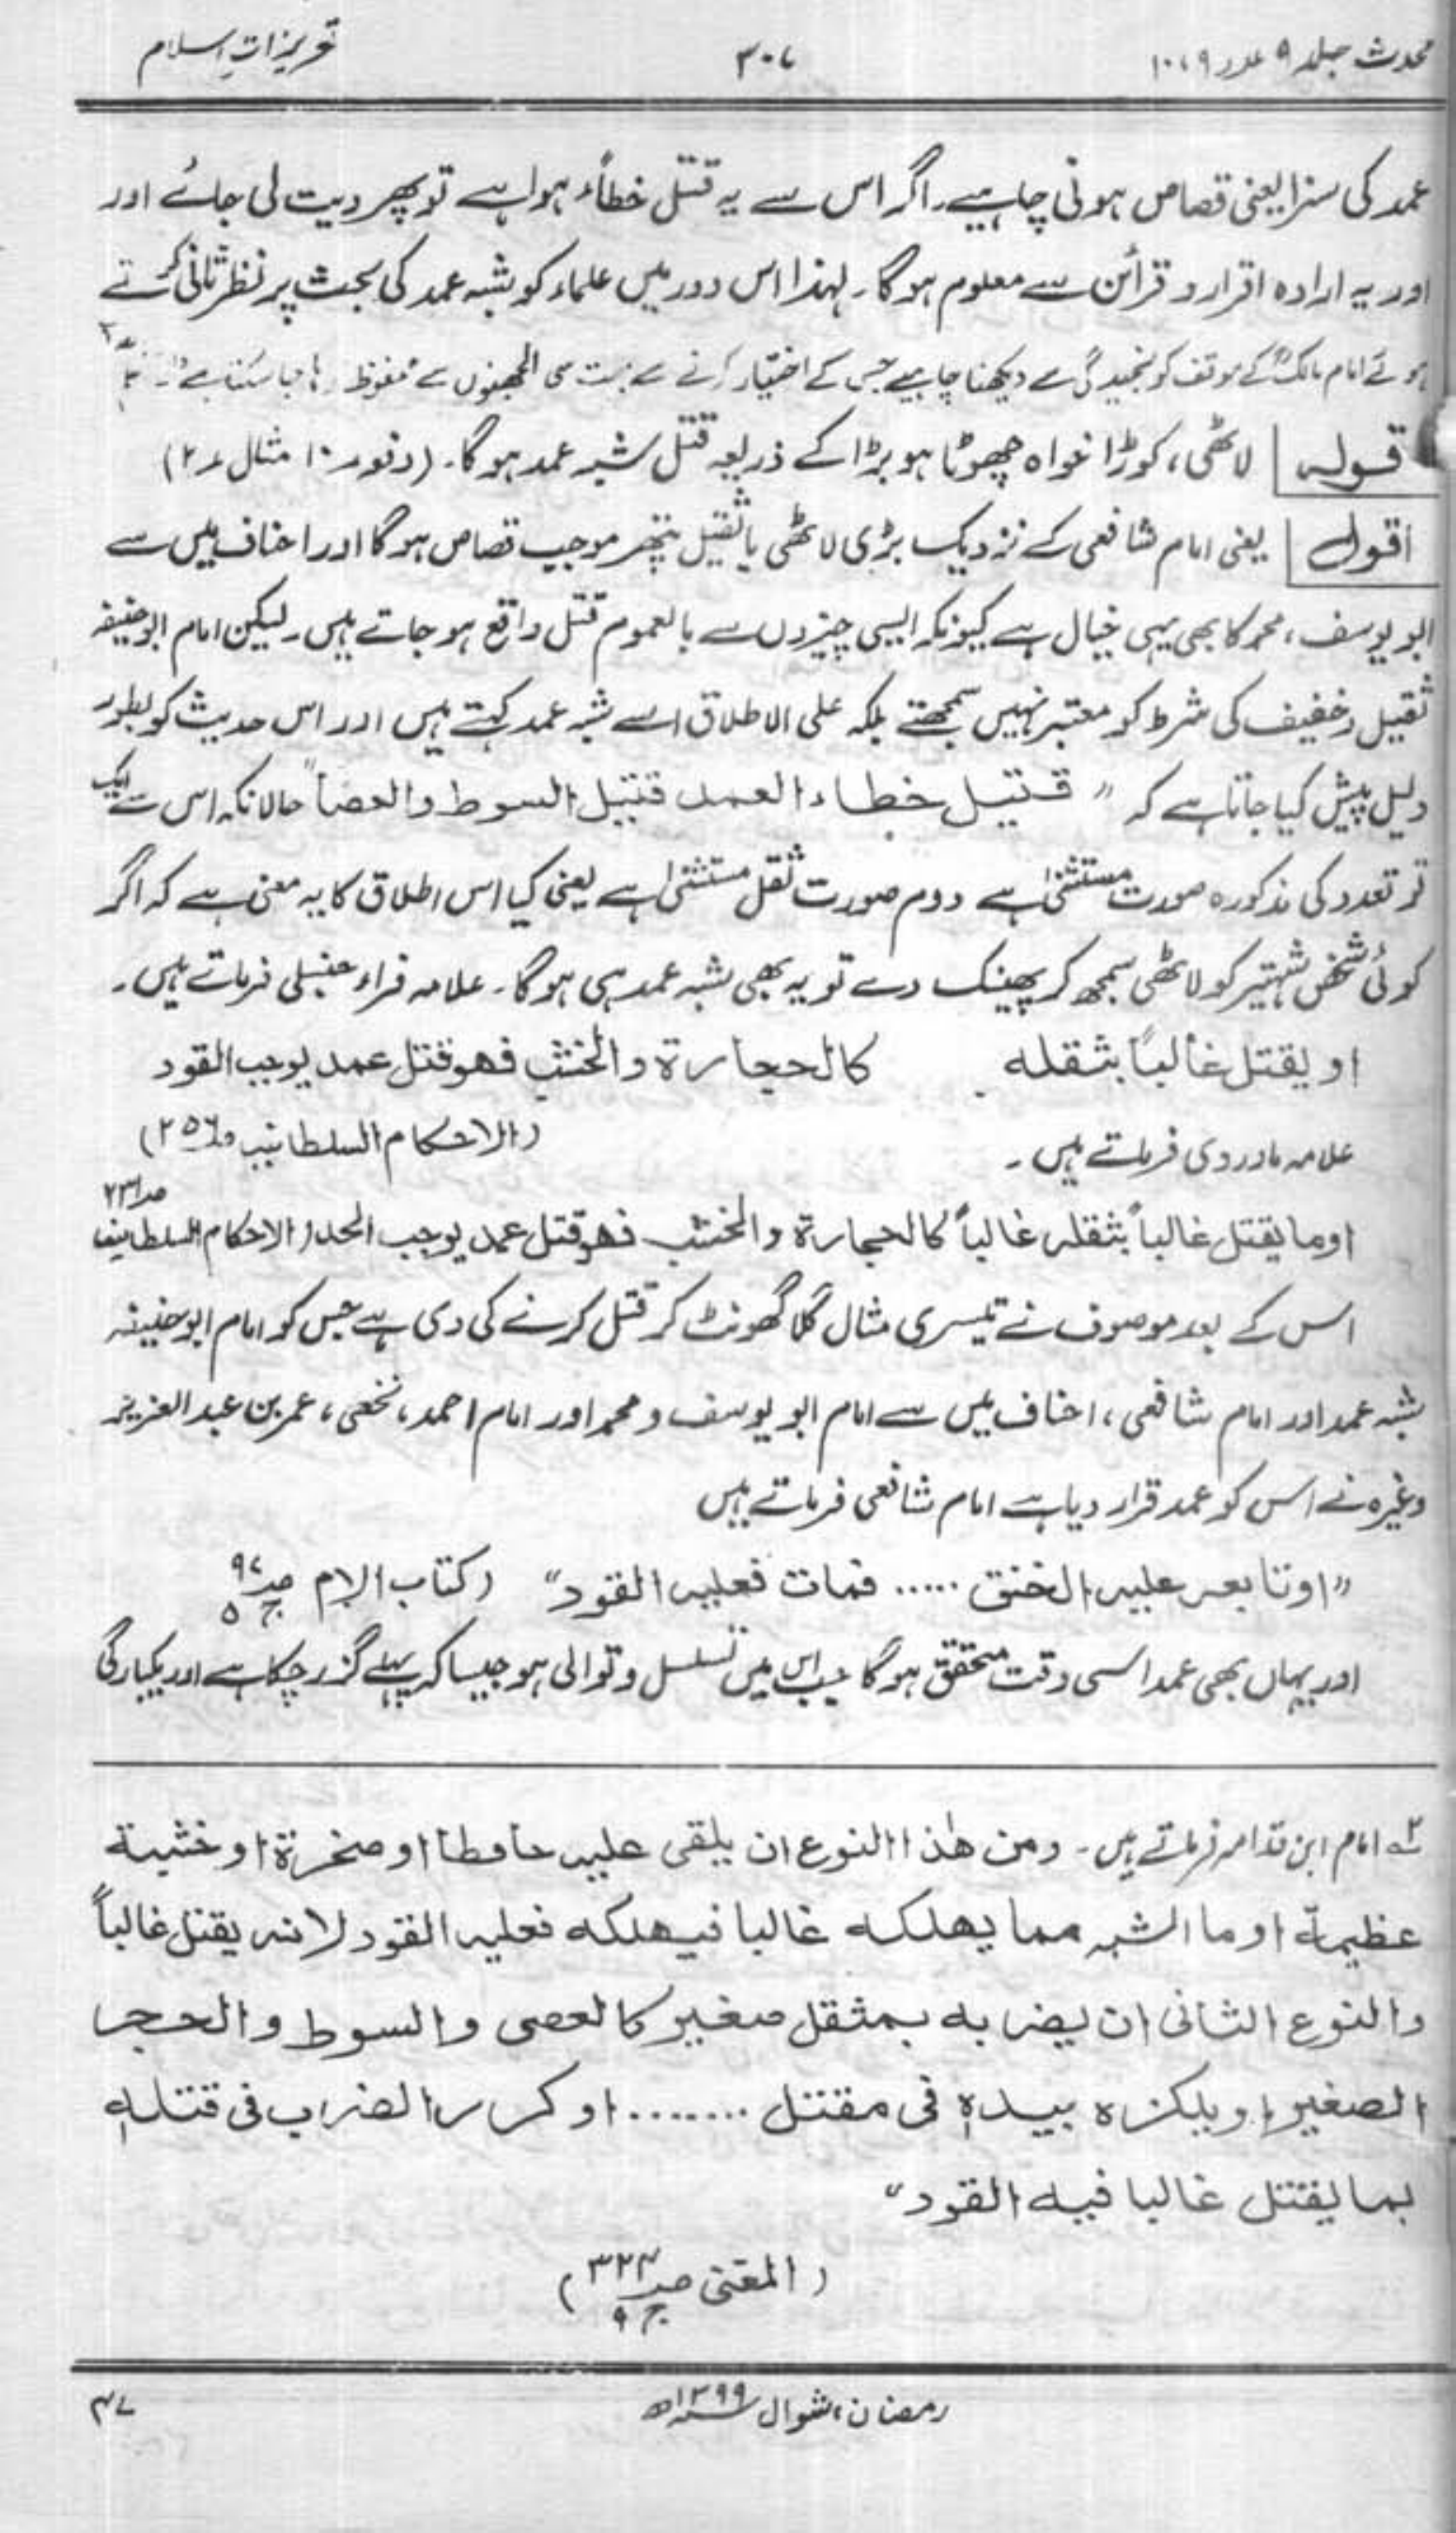 محدث جلد ۹ عدد ۹، ۱۰
۳۰۷
تعزیراتِ اسلام
عمد کی سزا یعنی قصاص ہونی چاہیے۔ اگر اس سے یہ قتل خطأً ہوا ہے تو پھر دیت لی جائے اور
اور یہ ارادہ اقرار و قرائن سے معلوم ہوگا۔ لہٰذا اس دور میں علماء کو شبہ عمد کی بحث پر نظر ثانی کرتے
ہوئے امام مالکؒ کے موقف کو سنجیدگی سے دیکھنا چاہیے جس کے اختیار کرنے سے بہت سی الجھنوں سے محفوظ رہا جا سکتا ہے
قولہ | لاٹھی، کوڑا خواہ چھوٹا ہو بڑا کے ذریعہ قتل شبہ عمد ہوگا۔ (دفعہ ۱۰ مثال ۲)
اقول | یعنی امام شافعی کے نزدیک بڑی لاٹھی یا ثقیل پتھر موجب قصاص ہوگا اور احناف میں سے
ابو یوسف، محمد کا بھی یہی خیال ہے کیونکہ ایسی چیزوں سے بالعموم قتل واقع ہو جاتے ہیں۔ لیکن امام ابو حنیفہ
ثقیل و خفیف کی شرط کو معتبر نہیں سمجھتے بلکہ علی الاطلاق اسے شبہ عمد کہتے ہیں اور اس حدیث کو بطور
دلیل پیش کیا جاتا ہے کہ " قتیل خطاء العمد قتیل السوط والعصا" حالانکہ اس سے ایک
تو تعدد کی مذکورہ صورت مستثنیٰ ہے دوم صورت ثقل مستثنیٰ ہے یعنی کیا اس اطلاق کا یہ معنی ہے کہ اگر
کوئی شخص شہتیر کو لاٹھی سمجھ کر پھینک دے تو یہ بھی شبہ عمد ہی ہوگا۔ علامہ فراء حنبلی فرماتے ہیں۔
او یقتل غالباً بثقلہ کالحجارۃ والخشب فھو قتل عمد یوجب القود
(الاحکام السلطانیہ ص۲۵۶)
علامہ ماوردی فرماتے ہیں۔
او ما یقتل غالباً بثقلہ غالباً کالحجارۃ والخشب فھو قتل عمد یوجب الحد (الاحکام السلطانیہ ص۲۳۱
اس کے بعد موصوف نے تیسری مثال گلا گھونٹ کر قتل کرنے کی دی ہے جس کو امام ابو حنیفہ
شبہ عمد اور امام شافعی، احناف میں سے امام ابو یوسف و محمد اور امام احمد، نخعی، عمر بن عبد العزیز
وغیرہ نے اس کو عمد قرار دیا ہے امام شافعی فرماتے ہیں
"او تابع علیہ الخنق ..... فمات فعلیہ القود" (کتاب الام ص۹۷ ج ۵
اور یہاں بھی عمد اسی وقت متحقق ہوگا جب اس میں تسلسل و توالی ہو جیسا کہ پہلے گزر چکا ہے اور یکبارگی
۲؎ امام ابن قدامہ فرماتے ہیں۔ ومن ھٰذا النوع ان یلقی علیہ حائطا او صخرۃ او خشبۃ
عظیمۃ او ما اشبہ مما یھلکہ غالبا فیھلکہ فعلیہ القود لانہ یقتل غالباً
والنوع الثانی ان یضربہ بمثقل صغیر کالعصی والسوط والحجر
الصغیر او یلکزہ بیدہ فی مقتل ....... او کرر الضرب فی قتلہ
بما یقتل غالبا فیہ القود"
(المغنی ص۳۲۴ ج ۹)
رمضان، شوال ۱۳۹۹ھ
۴۷